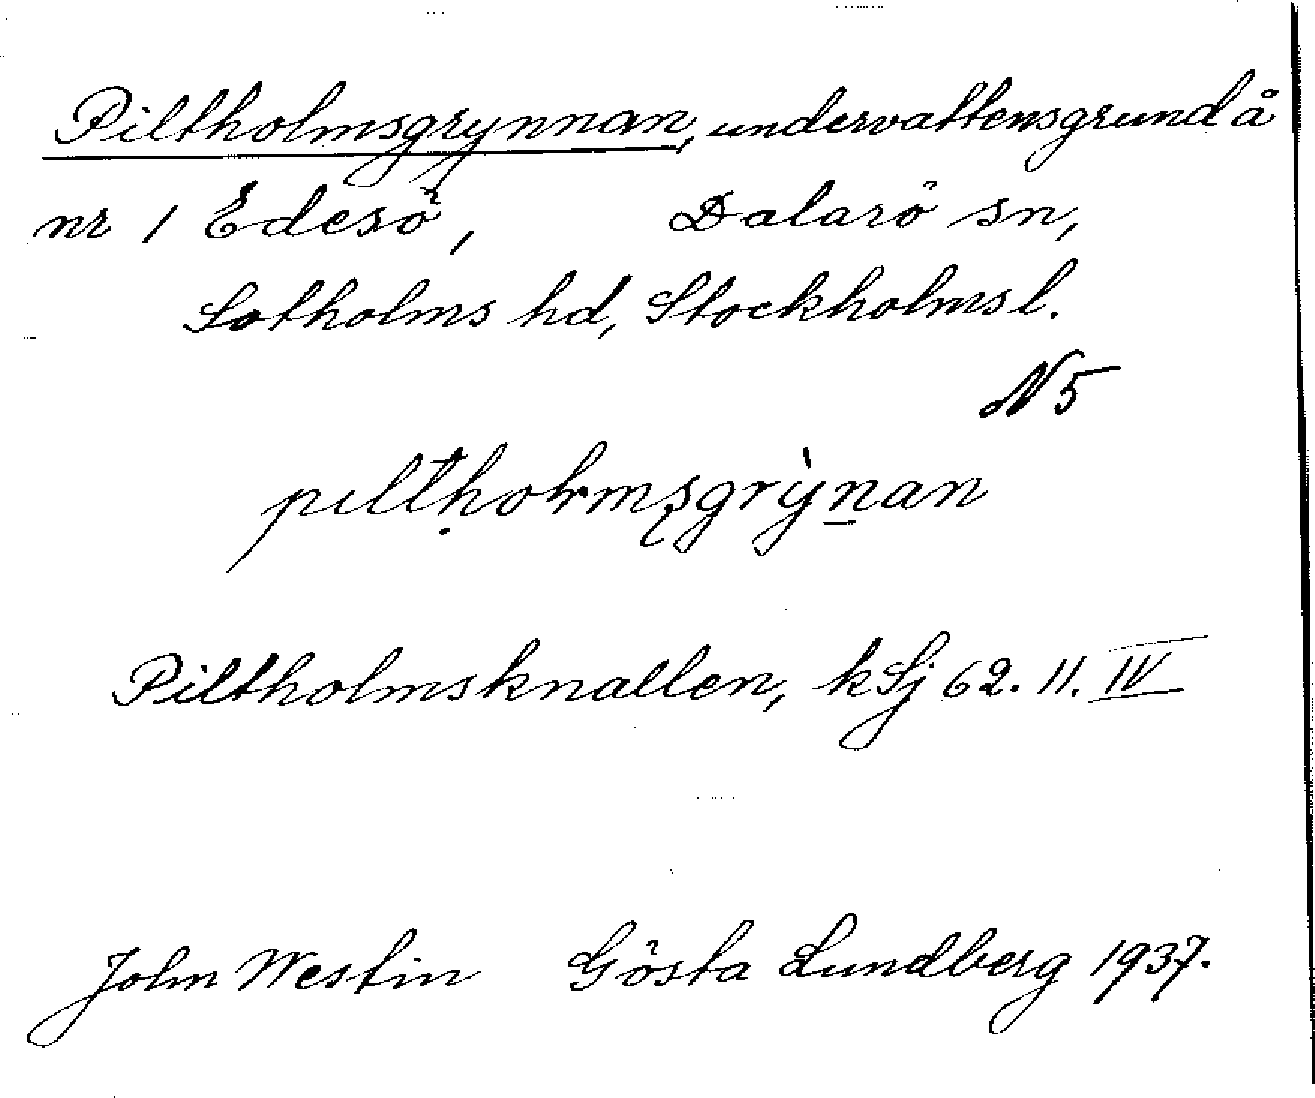 Piltholmsgrynnan, undervattensgrund å
nr 1 Edesö, Dalarö sn,
Sotholms hd, Stockholms l.
N 5
Piltholmsknallen, k Sj 62. 11. IV
John Westin Gösta Lundberg 1937.